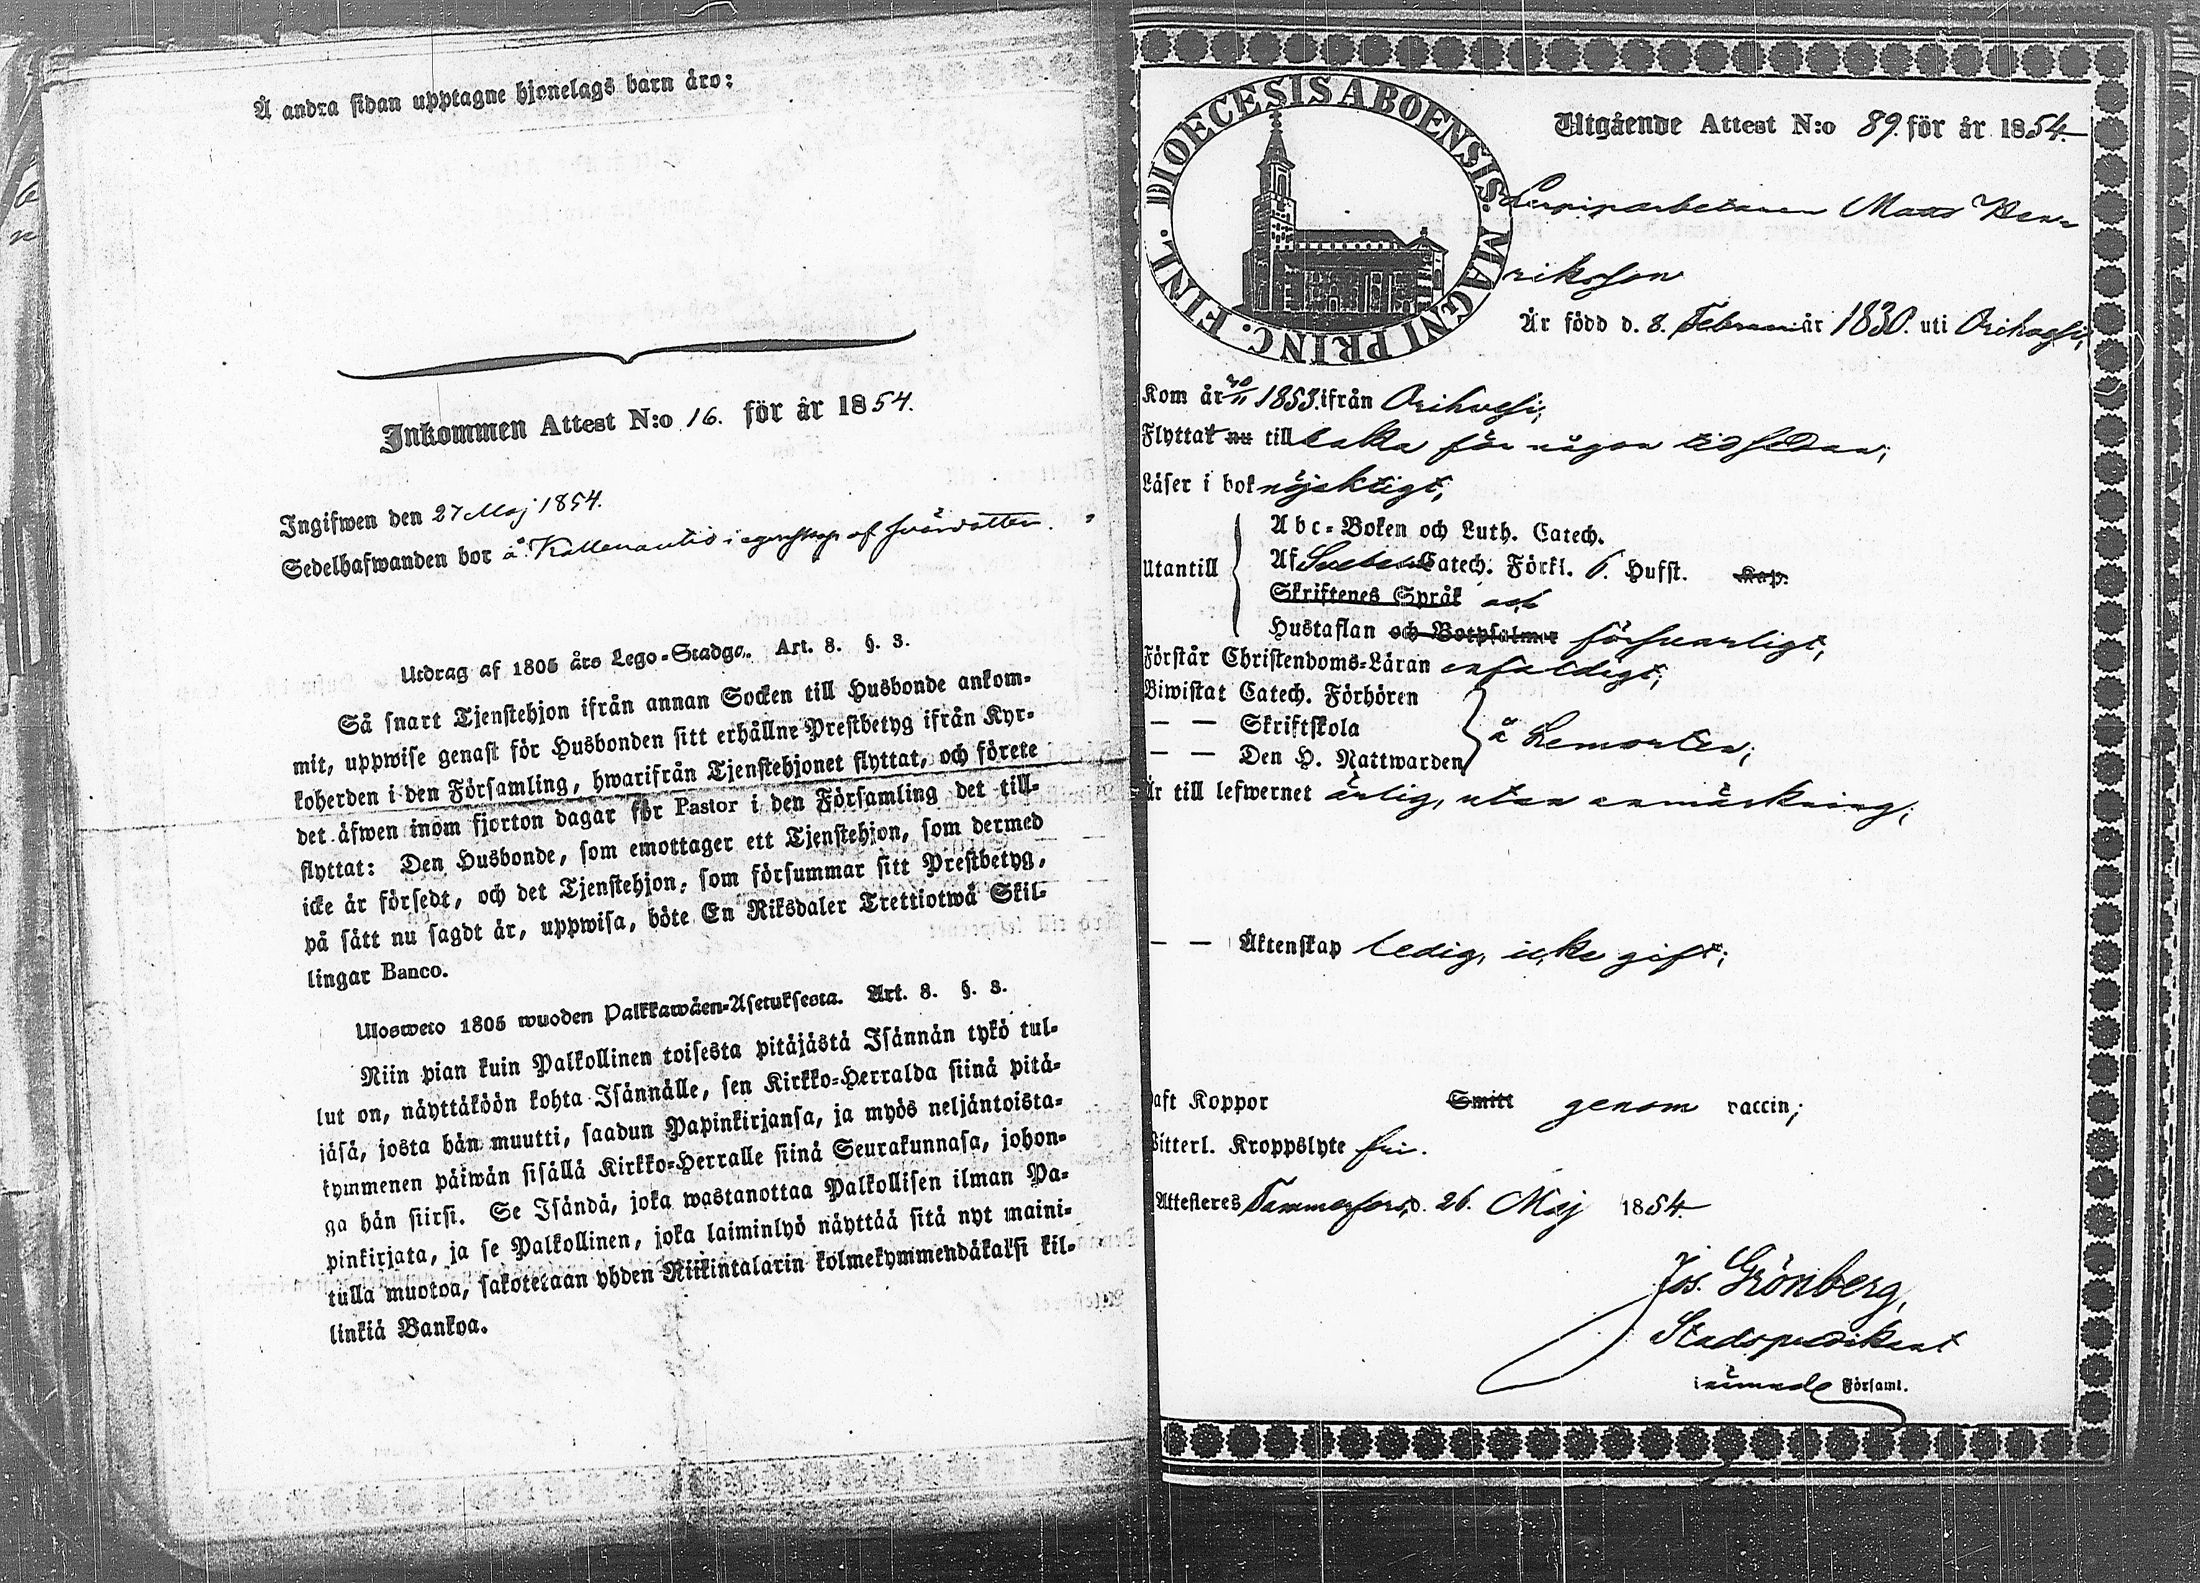 Å andra sidan upptagne hjonelags barn äro:
Inkommen Attest N:o 16. för år 1854.
Ingifwen den 27 Maj 1854.
Sedelhafwanden bor å Kallenautio i egenskap af
Utdrag af 1805 års Lego-Stadga. Art. 8. §. 3.
Så snart Tjenstehjon ifrån annan Socken till Husbonde ankom-
mit, uppwise genast för Husbonden sitt erhållne Prestbetyg ifrån Kyr-
koherden i den Församling, hwarifrån Tjenstehjonet flyttat, och förete
det äfwen inom fjorton dagar för Pastor i den Församling det till-
flyttat: Den Husbonde, som emottager ett Tjenstehjon, som dermed
icke är försedt, och det Tjenstehjon, som försummar sitt Prestbetyg,
på sätt nu sagdt är, uppwisa, böte En Riksdaler Trettiotwå Skil-
lingar Banco.
Ulosweto 1805 wuoden Palkkawäen-Asetuksesta. Art. 8. §. 3.
Niin pian kuin Palkollinen toisesta pitäjästä Isännän tykö tul-
lut on, näyttäköön kohta Isännälle, sen Kirkko-Herralda siinä pitä-
jäsä, josta hän muutti, saadun Papinkirjansa, ja myös neljäntoista-
kymmenen päiwän sisällä Kirkko-Herralle siinä Seurakunnasa, johon-
ga hän siirsi. Se Isändä, joka wastanottaa Palkollisen ilman Pa-
pinkirjata, ja se Palkollinen, joka laiminlyö näyttää sitä nyt maini-
tulla muotoa, sakotetaan yhden Riikintalarin kolmekymmendäkaksi kil-
linkiä Bankoa.
DIOECESIS ABOENSIS. MAGNI PRINC. FINL.
Utgående Attest N:o 89. för år 1854.
Matts Hen-
riksson
Är född d. 8. Februari år 1830. uti Orihvesi,
Kom år 1853. ifrån Orihvesi;
Flyttat nu till baka för någon tid sedan;
Läser i bok nöjaktigt,
Utantill
Abc-Boken och Luth. Catech.
Af Svebelii Catech. Förkl. 6. Hufst. Kap.
Skriftenes Språk och
Hustaflan och Botpsalmer försvarligt,
Förstår Christendoms-Läran enfaldigt;
Biwistat Catech. Förhören
— — Skriftskola
— — Den H. Nattwarden
å hemorten;
Är till lefwernet ärlig, utan anmärkning;
— — Äktenskap ledig, icke gift;
haft Koppor Smitt genom vaccin;
Witterl. Kroppslyte fri.
Attesteres Tammerfors, d. 26. Maj 1854.
Jos. Grönberg,
Stadspredikant
i nämnde Församl.